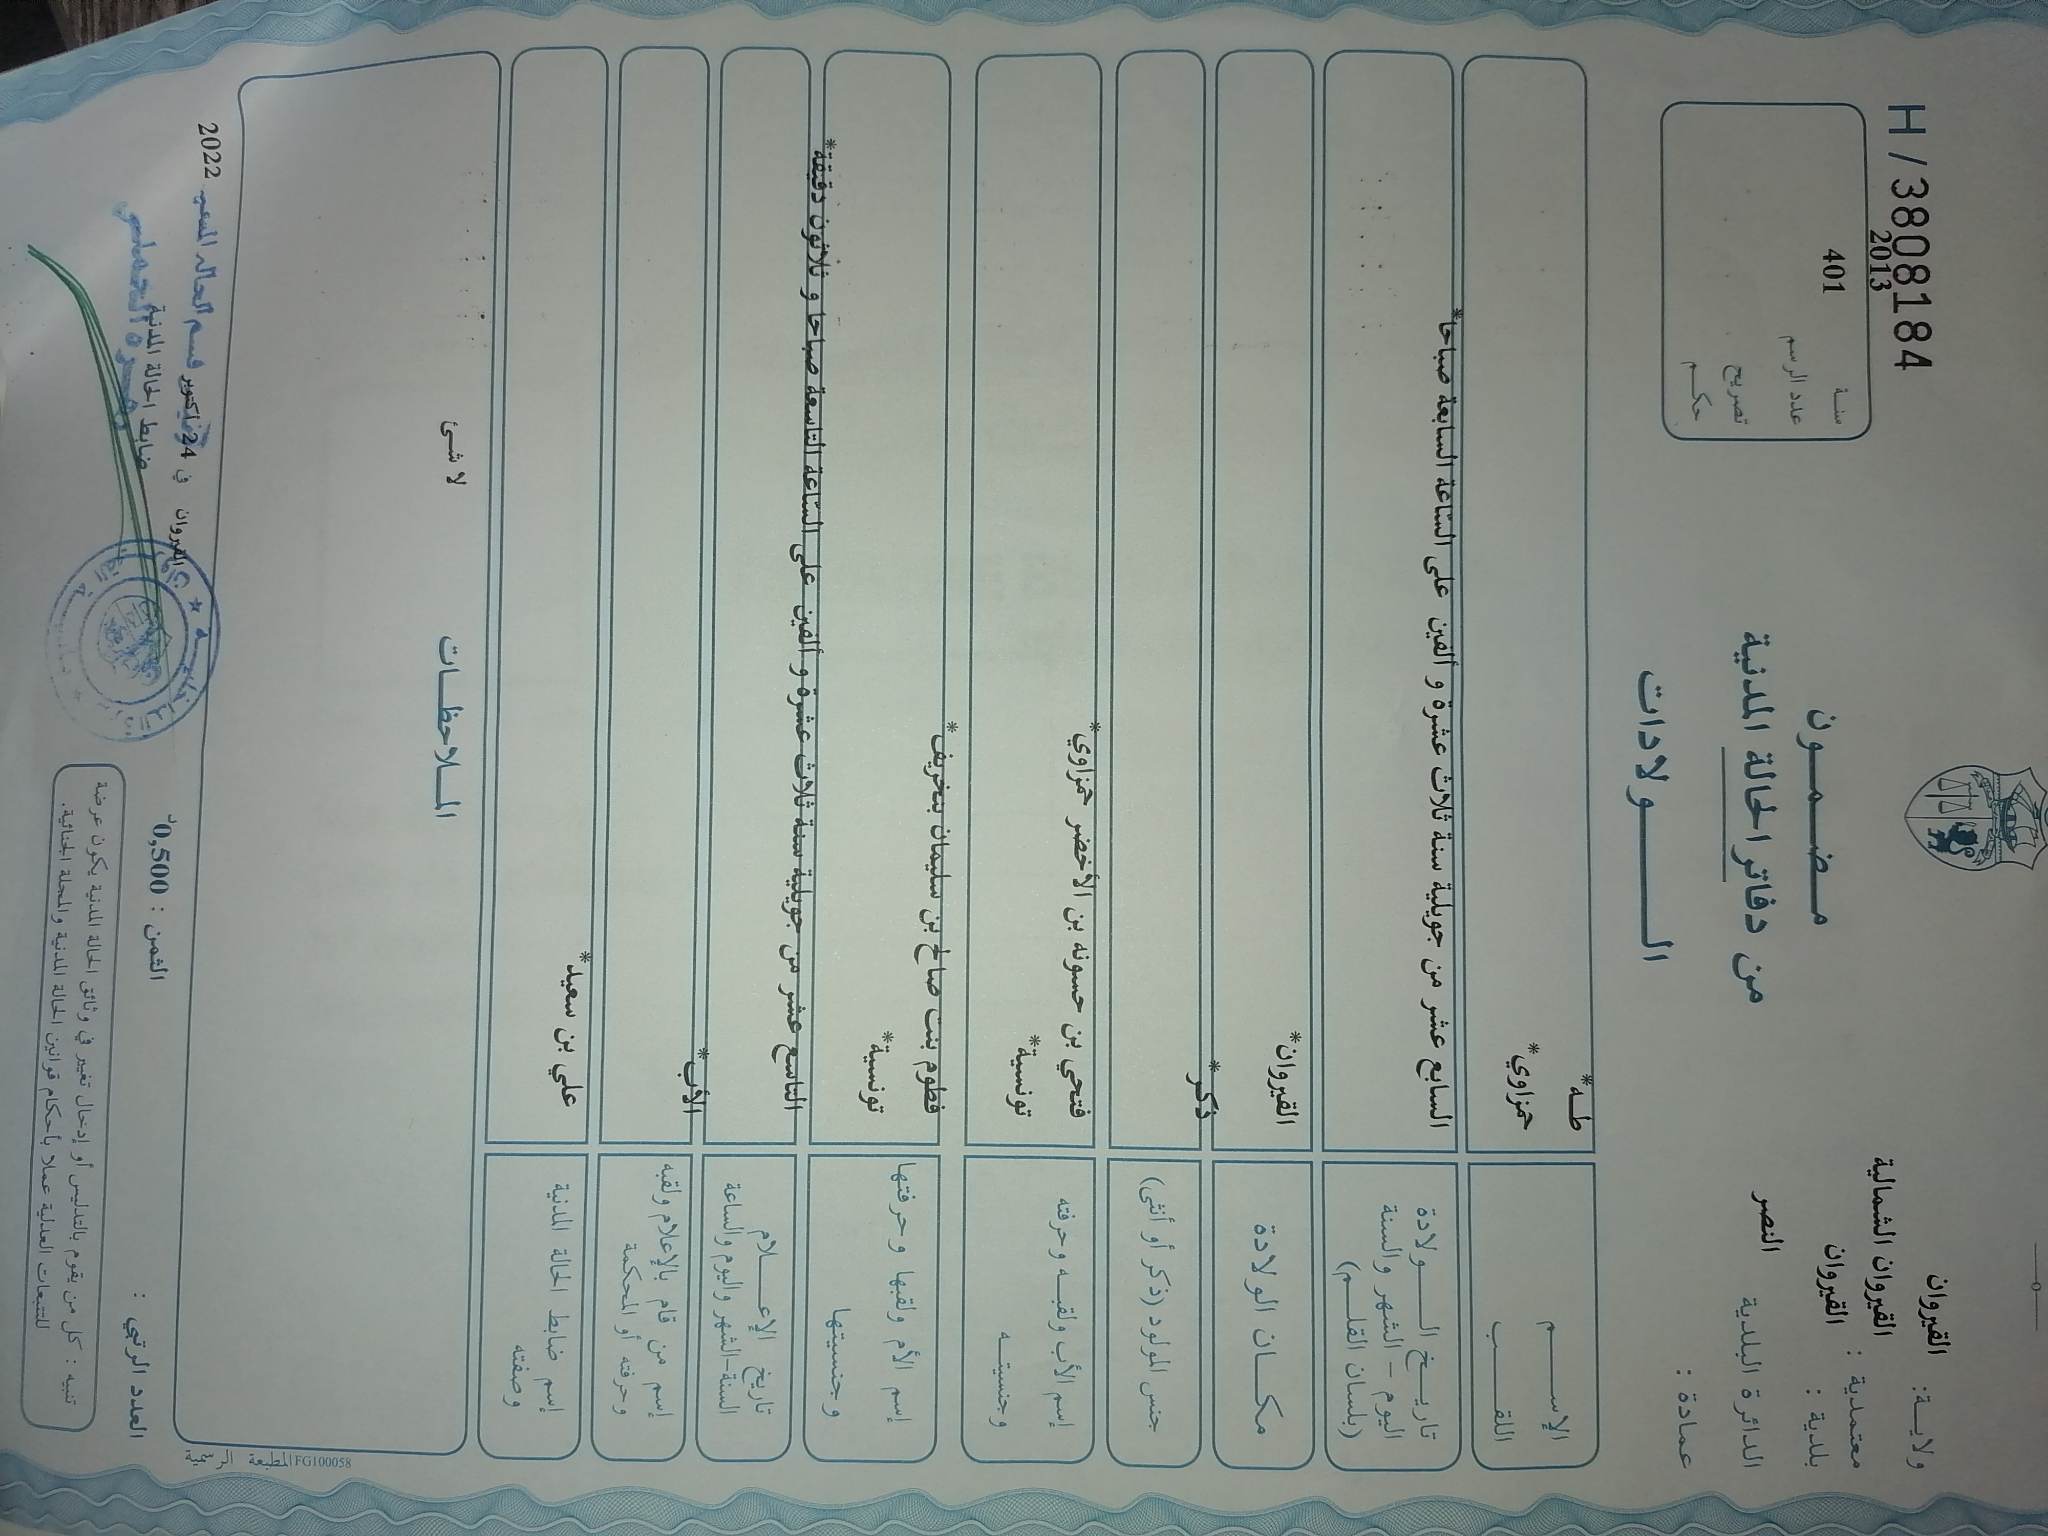 H / 38081184
ولايـــة: القيروان
معتمدية : القيروان الشمالية
بلدية : القيروان
الدائرة البلدية النصر
عمادة :
2013
سنـــة
401
عدد الرسم
تصريح
حكـــم
مــضــمـــون
من دفاتر الحالة المدنية
الـــــولادات
الإســـــم
طـه*
اللقـــب
حمزاوي*
تاريــخ الـــولادة
اليوم – الشهر والسنة
(بلسان القلـــم)
السابع عشر من جويلية سنة ثلاث عشرة و ألفين على الساعة السابعة صباحا*
مكـــان الولادة
القيروان*
جنس المولود (ذكر أو أنثى)
ذكر*
إسم الأب ولقبـــه وحرفته
وجنسيتـــه
فتحي بن حسونه بن الأخضر حمزاوي*
تونسية*
إسم الأم ولقبها وحرفتها
وجنسيتها
فطوم بنت صالح بن سليمان بنخريف*
تونسية*
تاريخ الإعـــلام
السنة-الشهر واليوم والساعة
التاسع عشر من جويلية سنة ثلاث عشرة و ألفين على الساعة التاسعة صباحا و ثلاثون دقيقة*
إسم من قام بالإعلام ولقبه
وحرفته أو المحكمة
الأب*
إسم ضابط الحالة المدنية
وصفته
علي بن سعيد*
المـــلاحظـــات
لا شئ
القيروان في 24 أكتوبر 2022
ضابط الحالة المدنية
الثمن : 0,500د
العدد الرتبي :
تنبيه : كل من يقوم بالتدليس أو إدخال تغيير في وثائق الحالة المدنية يكون عرضة
للتتبعات العدلية عملا بأحكام قوانين الحالة المدنية والمجلة الجنائية.
FG100058 المطبعة الرسمية